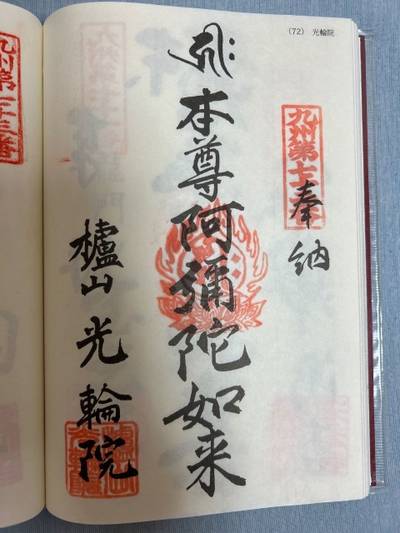 （72） 光輪院
九州第七十二番
奉納
本尊阿彌陀如来
櫨山 光輪院